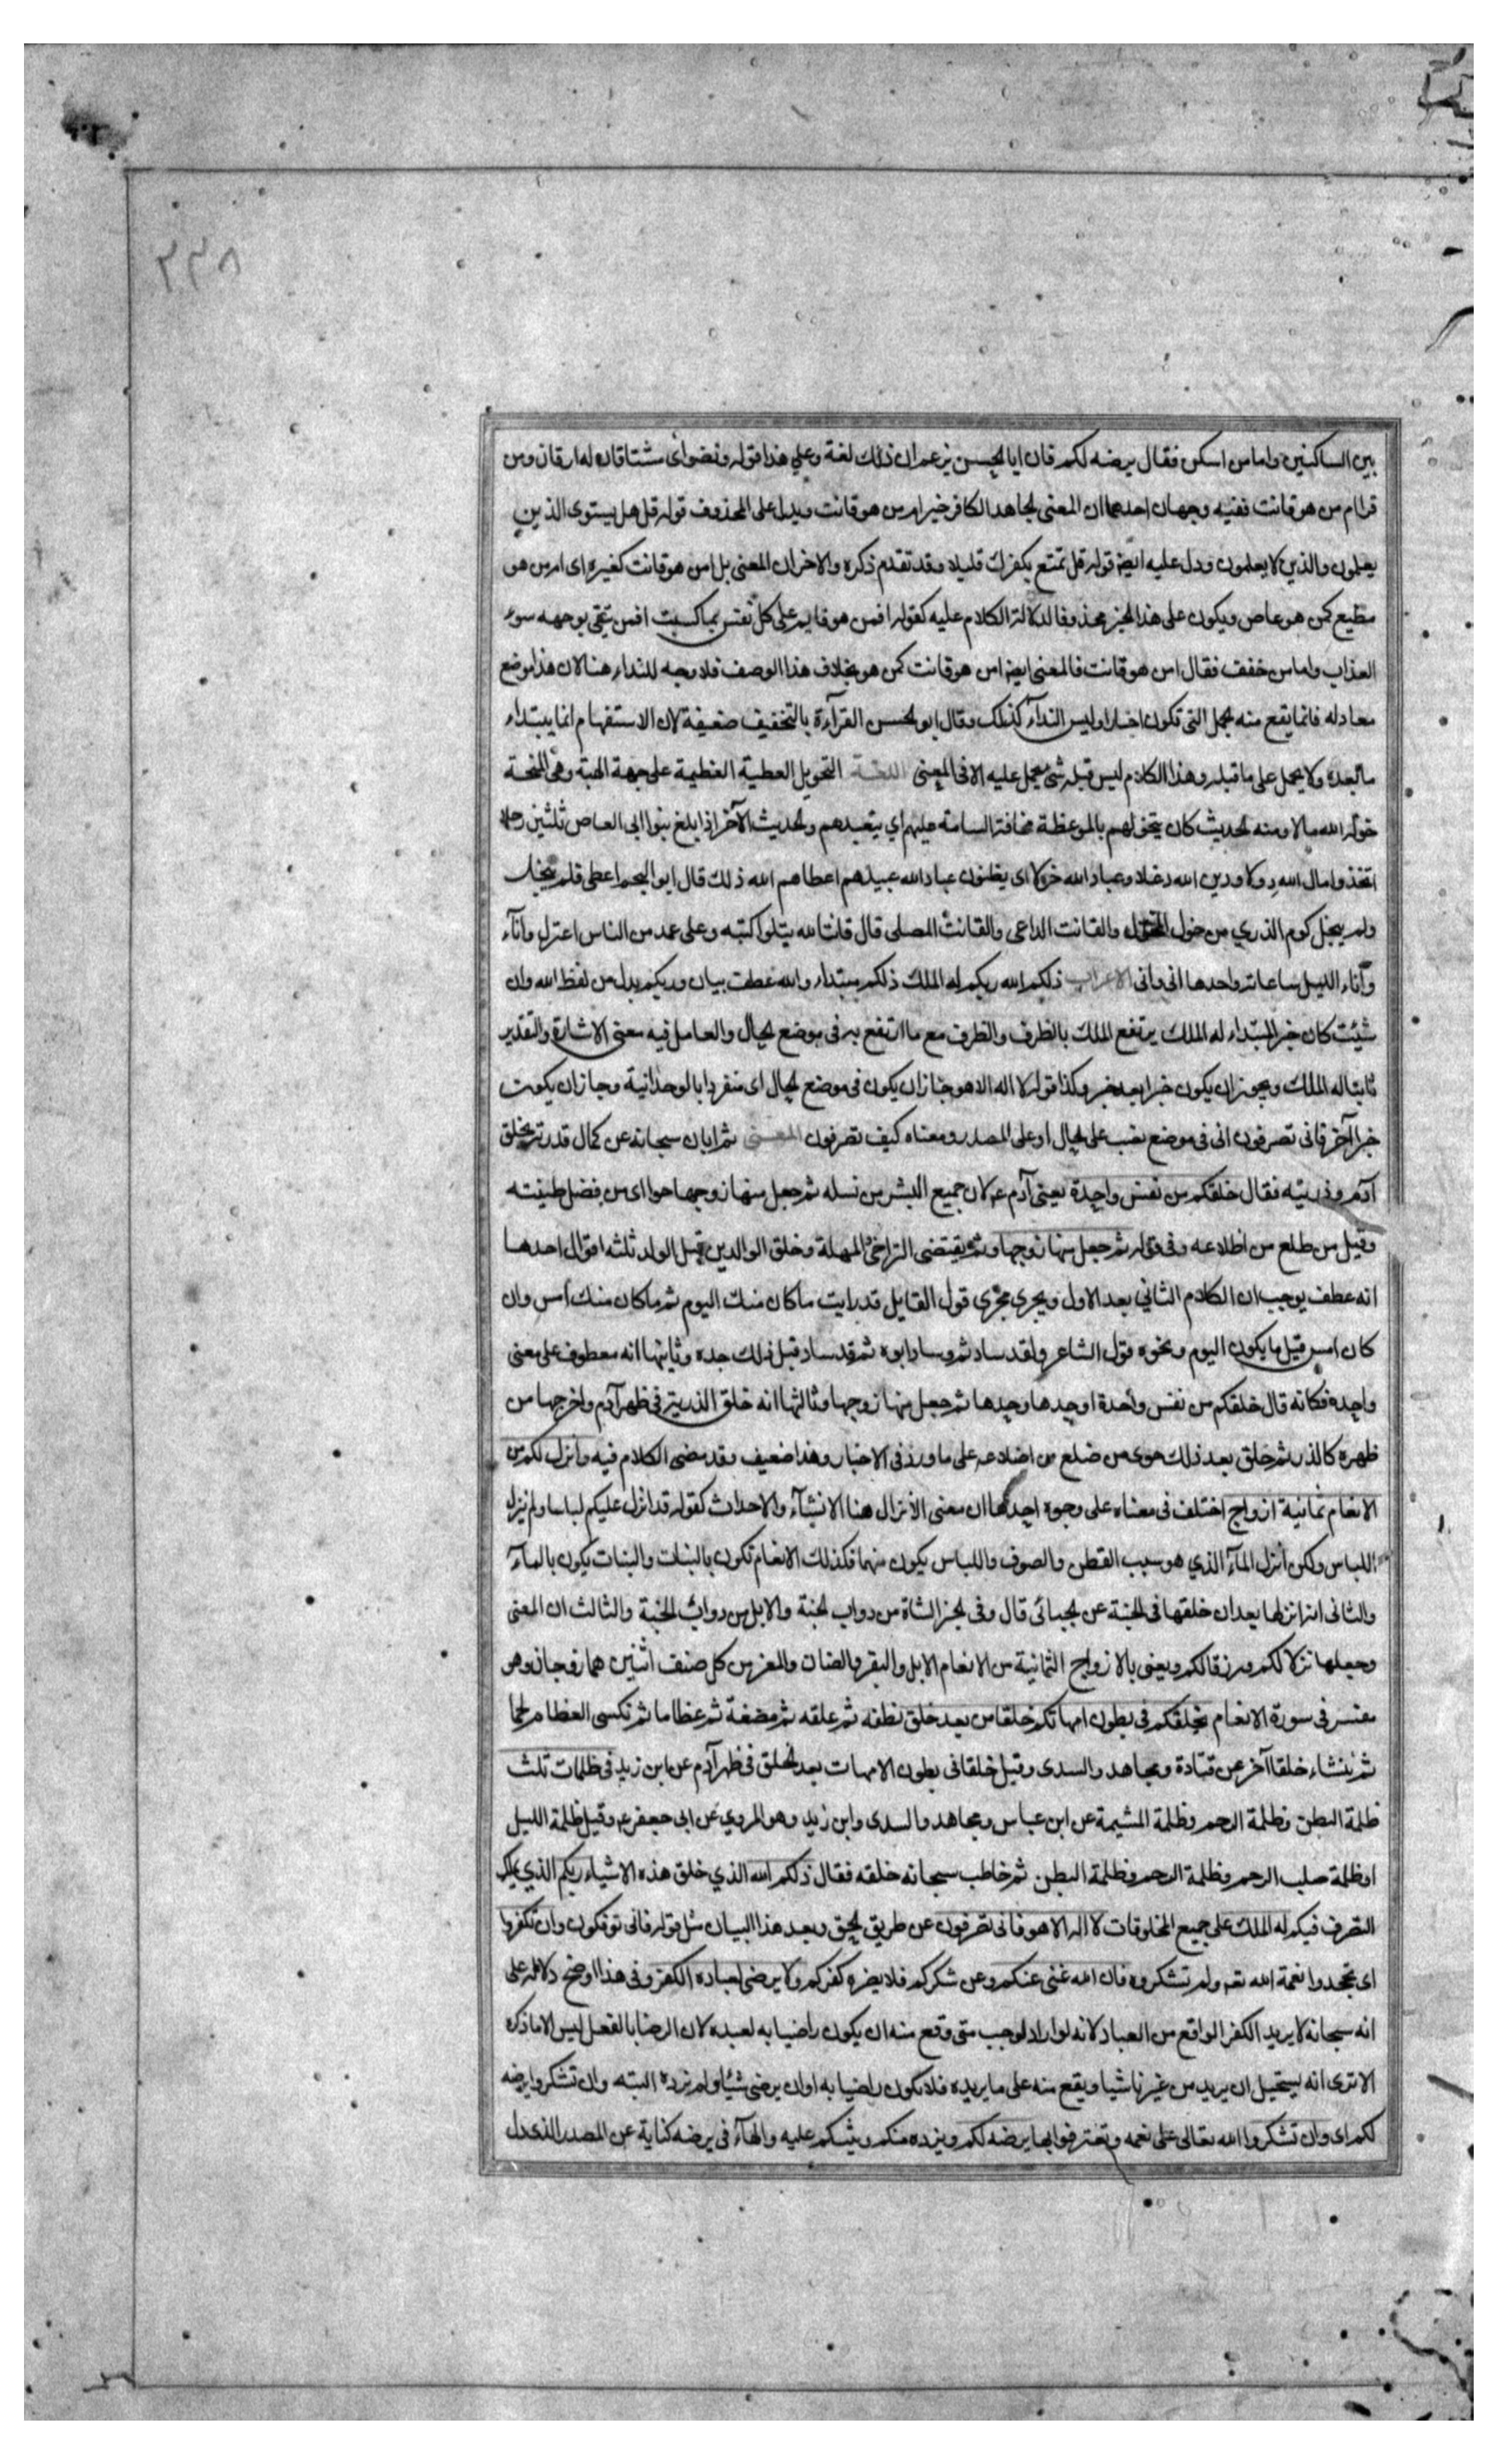 بين الساكنين واما من اسكن فقال يرضه لكم فان ابا الحسن يزعم ان ذلك لغة وعلي هذا قوله ونضواى مشتاقان له ارقان ومن
قرا ام من هو قانت ففيه وجهان احدهما ان المعنى لجاهد الكافر خير ام من هو قانت ويدل على المحذوف قوله قل هل يستوى الذين
يعلمون والذين لا يعلمون ودل عليه ايضا قوله قل تمتع بكفرك قليلا وقد تقدم ذكره والاخر ان المعنى بل امن هو قانت كغيره اى امن هو
مطيع كمن هو عاص ويكون على هذا الخبر محذوفا لدلالة الكلام عليه كقوله افمن هو قايم على كل نفس بما كسبت افمن يتقى بوجهه سوء
العذاب واما من خفف فقال امن هو قانت فالمعنى ايضا امن هو قانت كمن هو بخلاف هذا الوصف فلا وجه للنداء هنا لان هذا موضع
معادله فانما يقع منه الجمل التى تكون اخبارا وليس النداء كذلك وقال ابو الحسن القرآءة بالتخفيف ضعيفة لان الاستفهام انما يبتداء
ما بعده ولا يحمل على ما قبله وهذا الكلام ليس قبله شئ يحمل عليه الا فى المعنى اللغة التخويل العطية العظيمة على جهة الهبة وهى المنحة
خوله الله مالا ومنه الحديث كان يتخولهم بالموعظة مخافة السامة عليهم اي يتعهدهم والحديث الآخر اذا بلغ بنوا ابى العاص ثلثين رجلا
اتخذوا مال الله دولا ودين الله دغلا وعباد الله خولا اى يظنون عباد الله عبيدهم اعطاهم الله ذلك قال ابو النجم اعطى فلم يبخل
ولم يبخل كوم الذري من خول المخول والقانت الداعى والقانت المصلى قال قانتا لله يتلو كتبه وعلى عمد من الناس اعتزل وانآء
وآناء الليل ساعاته واحدها انى وانى الاعراب ذلكم الله ربكم له الملك ذلكم مبتداء والله عطف بيان وربكم بدل من لفظ الله وان
شئت كان خبر المبتداء له الملك يرتفع الملك بالظرف والظرف مع ما ارتفع به فى موضع الحال والعامل فيه معنى الاشارة والتقدير
ثابتا له الملك ويجوز ان يكون خبرا بعد خبر وكذا قوله لا اله الا هو جاز ان يكون فى موضع الحال اى منفردا بالوحدانية وجاز ان يكون
خبرا آخر فانى تصرفون انى فى موضع نصب على الحال او على المصدر ومعناه كيف تصرفون المعنى ثم ابان سبحانه عن كمال قدرته بخلق
آدم وذريته فقال خلقكم من نفس واحدة يعنى آدم ع لان جميع البشر من نسله ثم جعل منها زوجها حوا اى من فضل طينته
وقيل من ضلع من اضلاعه وفى قوله ثم جعل منها زوجها وثم يقتضى التراخى المهلة وخلق الوالدين قبل الولد ثلثه اقوال احدها
انه عطف يوجب ان الكلام الثاني بعد الاول ويجرى مجرى قول القايل قد رايت ما كان منك اليوم ثم ما كان منك أمس وان
كان امس قبل ما يكون اليوم ونحوه قول الشاعر ولقد ساد ثم ساد ابوه ثم قد ساد قبل ذلك جده وثانيها انه معطوف على معنى
واحده فكانه قال خلقكم من نفس واحدة اوحدها وحدها ثم جعل منها زوجها وثالثها انه خلق الذرية فى ظهر آدم واخرجها من
ظهره كالذر ثم خلق بعد ذلك حوى من ضلع من اضلاعه على ما ورد فى الاخبار وهذا ضعيف وقد مضى الكلام فيه وانزل لكم من
الانعام ثمانية ازواج اختلف فى معناه على وجوه احدها ان معنى الأنزال هنا الانشآء والاحداث كقوله قد انزل عليكم لباسا ولم ينزل
اللباس ولكن انزل المآء الذي هو سبب القطن والصوف واللباس يكون منهما فكذلك الانعام تكون بالنبات والنبات يكون بالمآء
والثانى انه انزلها بعد ان خلقها فى الجنة عن الجبائى قال وفى الخبر الشاة من دواب الجنة والابل من دواب الجنة والثالث ان المعنى
وجعلها نزلا لكم ورزقا لكم ويعنى بالازواج الثمانية من الانعام الابل والبقر والضان والمعز من كل صنف اثنين هما زوجان وهو
مفسر فى سورة الانعام يخلقكم فى بطون امهاتكم خلقا من بعد خلق نطفه ثم علقه ثم مضغة ثم عظاما ثم تكسى العظام لحما
ثم ينشاء خلقا آخر عن قتادة ومجاهد والسدى وقيل خلقا فى بطون الامهات بعد الخلق فى ظهر آدم عن ابن زيد فى ظلمات ثلث
ظلمة البطن وظلمة الرحم وظلمة المشيمة عن ابن عباس ومجاهد والسدى وابن زيد وهو المروي عن ابى جعفر ع وقيل ظلمة الليل
او ظلمة صلب الرحم وظلمة الرحم وظلمة البطن ثم خاطب سبحانه خلقه فقال ذلكم الله الذي خلق هذه الاشياء ربكم الذي يملك
التصرف فيكم له الملك على جميع المخلوقات لا اله الا هو فانى تصرفون عن طريق الحق بعد هذا البيان مثل قوله فانى توفكون وان تكفروا
اى تجحدوا نعمة الله تع ولم تشكروه فان الله غنى عنكم وعن شكركم فلا يضره كفركم ولا يرضى لعباده الكفر وفى هذا اوضح دلالة على
انه سبحانه لا يريد الكفر الواقع من العباد لانه لو اراد لوجب متى وقع منه ان يكون راضيا به لعبده لان الرضا بالفعل ليس الا ما ذكره
الا ترى انه يستحيل ان يريد من غيرنا شيا ويقع منه على ما يريده فلا نكون راضيا به او ان يرضى شيئا ولم نرده البته وان تشكروا يرضه
لكم اى وان تشكروا الله تعالى على نعمه وتعترفوا بها يرضه لكم ويزده منكم ويثبكم عليه والهآء فى يرضه كناية عن المصدر الذى دل